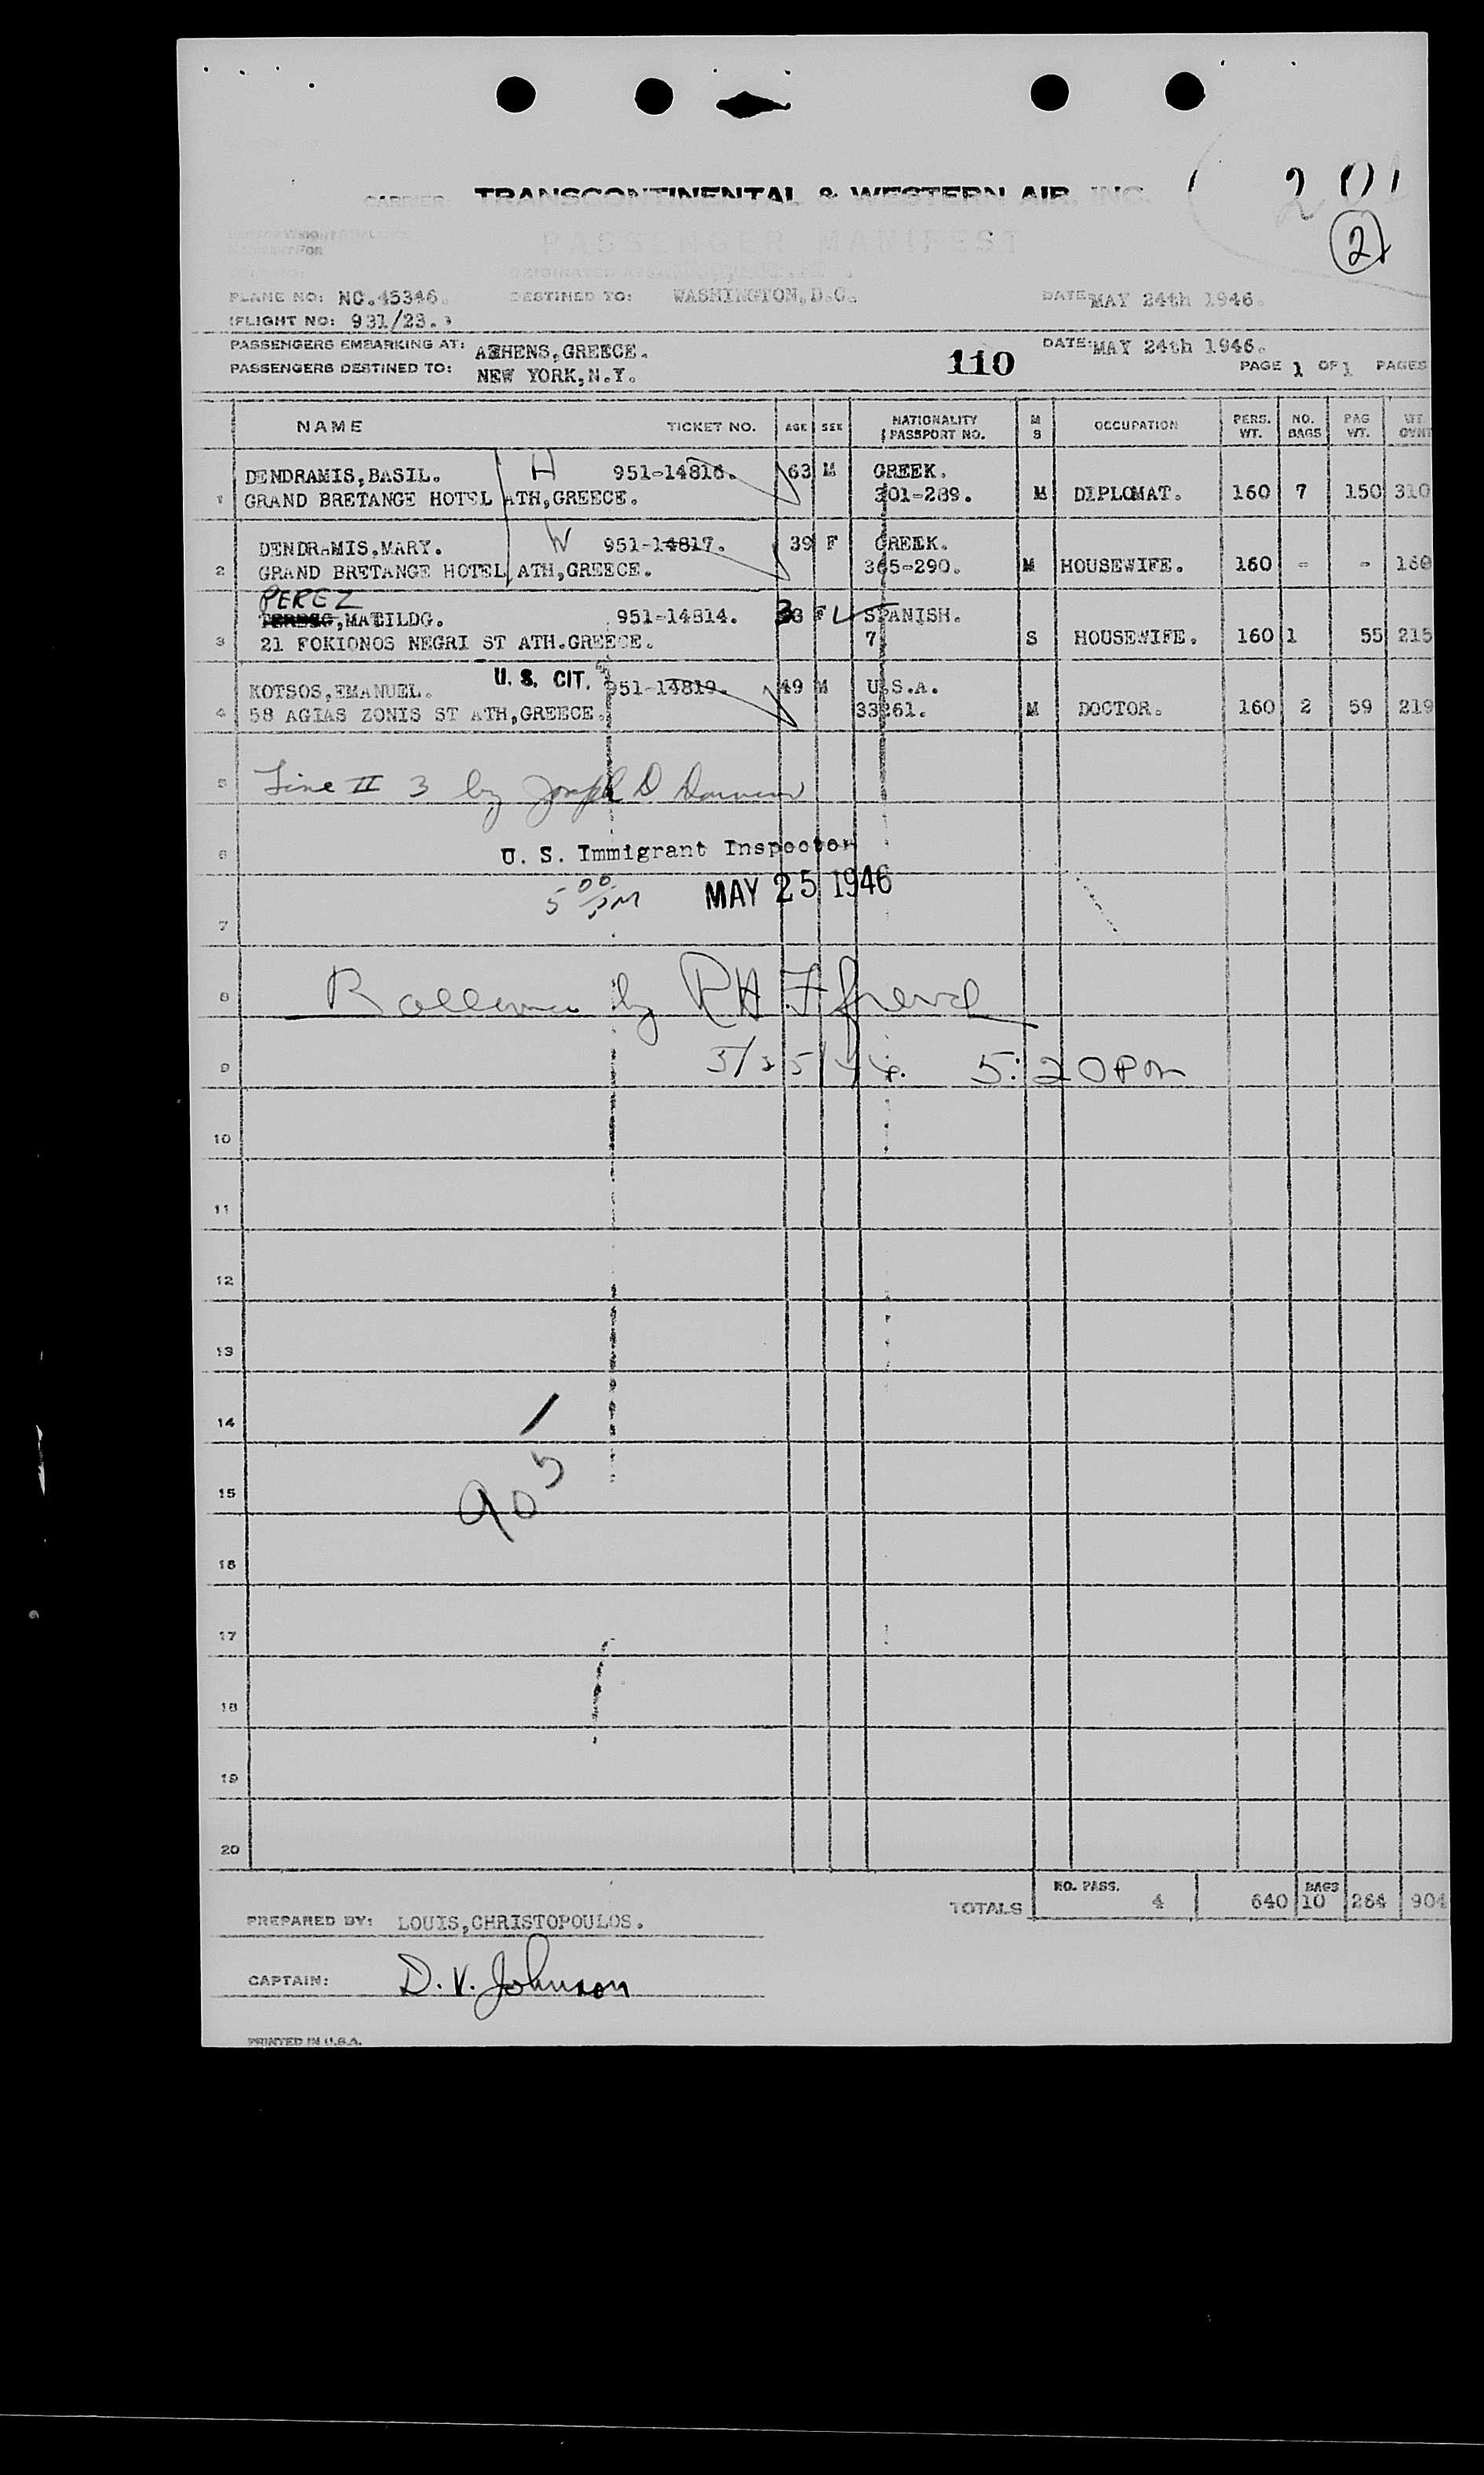 201
2
CARRIER TRANSCONTINENTAL & WESTERN AIR, INC.
PASSENGER MANIFEST
PLANE NO: NC.45346. DESTINED TO: WASHINGTON,D.C. DATE: MAY 24th 1946.
FLIGHT NO: 931/23.
PASSENGERS EMBARKING AT: ATHENS,GREECE. 110 DATE: MAY 24th 1946.
PASSENGERS DESTINED TO: NEW YORK,N.Y. PAGE 1 OF 1 PAGES
NAME TICKET NO. AGE SEX NATIONALITY PASSPORT NO. M S OCCUPATION PERS. WT. NO. BAGS BAG WT.
DENDRAMIS,BASIL. H 951-14816. 63 M GREEK.
1 GRAND BRETANGE HOTEL ATH,GREECE. 301-289. M DIPLOMAT. 160 7 150 310
DENDRAMIS,MARY. W 951-14817. 39 F GREEK.
2 GRAND BRETANGE HOTEL,ATH,GREECE. 365-290. M HOUSEWIFE. 160 - - 160
PEREZ
,MATILDG. 951-14814. 33 F SPANISH.
3 21 FOKIONOS NEGRI ST ATH.GREECE. 7 S HOUSEWIFE. 160 1 55 215
KOTSOS,EMANUEL. U. S. CIT. 951-14819. 49 M U.S.A.
4 58 AGIAS ZONIS ST ATH,GREECE. 33261. M DOCTOR. 160 2 59 219
5 Line II 3 by Joseph D
6 U. S. Immigrant Inspector
5 00 PM MAY 25 1946
7
8 by R H
9 5/25/46. 5:20 PM
10
11
12
13
14
15 905
16
17
18
19
20
TOTALS NO. PASS. 4 640 BAGS 10 264 904
PREPARED BY: LOUIS,CHRISTOPOULOS.
CAPTAIN: D. V. Johnson
PRINTED IN U.S.A.